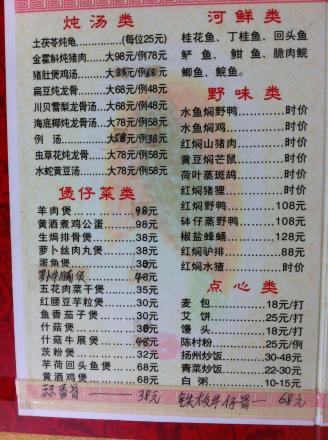 炖汤类
土茯苓炖龟............(每位25元)
金霍斛炖猪肉......大98元/例78元
猪肚煲鸡汤......大88元/例68元
扁豆炖龙骨......大68元/例48元
川贝雪梨龙骨汤...大68元/例48元
海底椰炖龙骨......大78元/例58元
例汤......大58元/例38元
虫草花炖龙骨......大78元/例58元
水蛇黄豆汤......大78元/例58元
煲仔菜类
羊肉煲............98元
黄酒煮鸡公蛋......98元
生焗排骨煲......38元
萝卜丝肉丸煲......38元
蛋角煲............30元
萝卜牛腩煲 48元
五花肉菜干煲......35元
红腰豆芋粒煲......30元
鱼香茄子煲......30元
什菇煲............30元
什菇牛展煲......48元
茨粉煲............32元
芋荷回头鱼煲......68元
黄酒鸡煲............68元
蒜香骨——38元
河鲜类
桂花鱼、丁桂鱼、回头鱼
鲈鱼、鲋鱼、脆肉鲩
鲫鱼、鲩鱼。
野味类
水鱼焖野鸭............时价
水鱼焖鸡............时价
红焖山猪肉............时价
黄豆焖芒鼠............时价
荷叶蒸斑鸪............时价
红焖猪狸............时价
红焖野鸭............108元
钵仔蒸野鸭......108元
椒盐蜂蛹............128元
红焖驴排............88元
红焖水獐............时价
点心类
麦包............18元/打
艾饼............25元/打
馒头............18元/打
陈村粉............25元/例
扬州炒饭......30-48元
青菜炒饭......22-30元
白粥............10-15元
铁板牛仔骨——68元